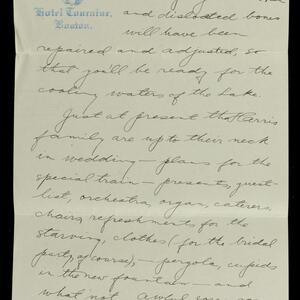 Hotel Touraine,
Boston.
and dislocated bones
will have been
repaired and adjusted, so
that you'll be ready for the
cooling waters of the Lake.
Just at present the
family are up to their neck
in wedding — plans for the
special train — presents, guest-
list, orchestra, organ, caterers,
chairs, refreshments for the
starving, clothes (for the bridal
party, of course), — pergola, cupids
in the new fountain — and
what not.